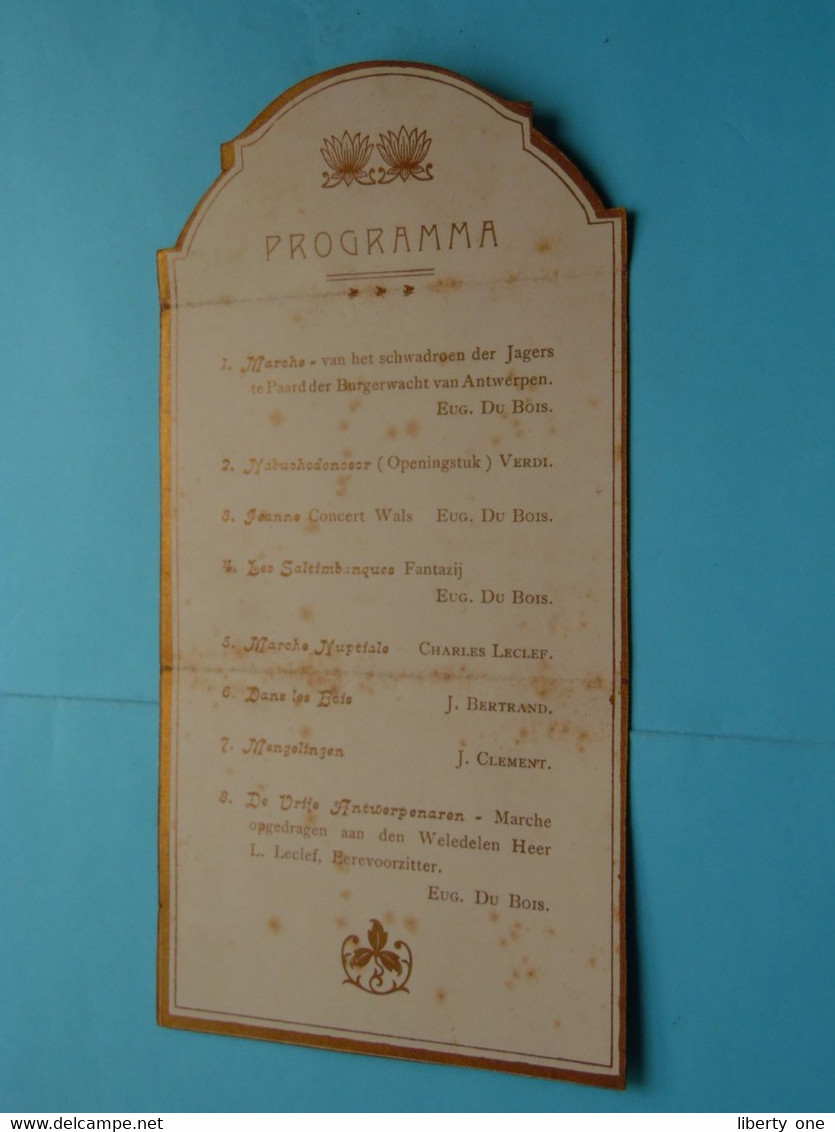 PROGRAMMA
1. Marche - van het schwadroen der Jagers
te Paard der Burgerwacht van Antwerpen.
EUG. DU BOIS.
2. Nabuchodonosor ( Openingstuk ) VERDI.
3. Jeanne Concert Wals EUG. DU BOIS.
4. Les Saltimbanques Fantazij
EUG. DU BOIS.
5. Marche Nuptiale CHARLES LECLEF.
6. Dans les Bois J. BERTRAND.
7. Mengelingen J. CLEMENT.
8. De Vrije Antwerpenaren - Marche
opgedragen aan den Weledelen Heer
L. Leclef, Eerevoorzitter.
EUG. DU BOIS.
www.delcampe.net
liberty one